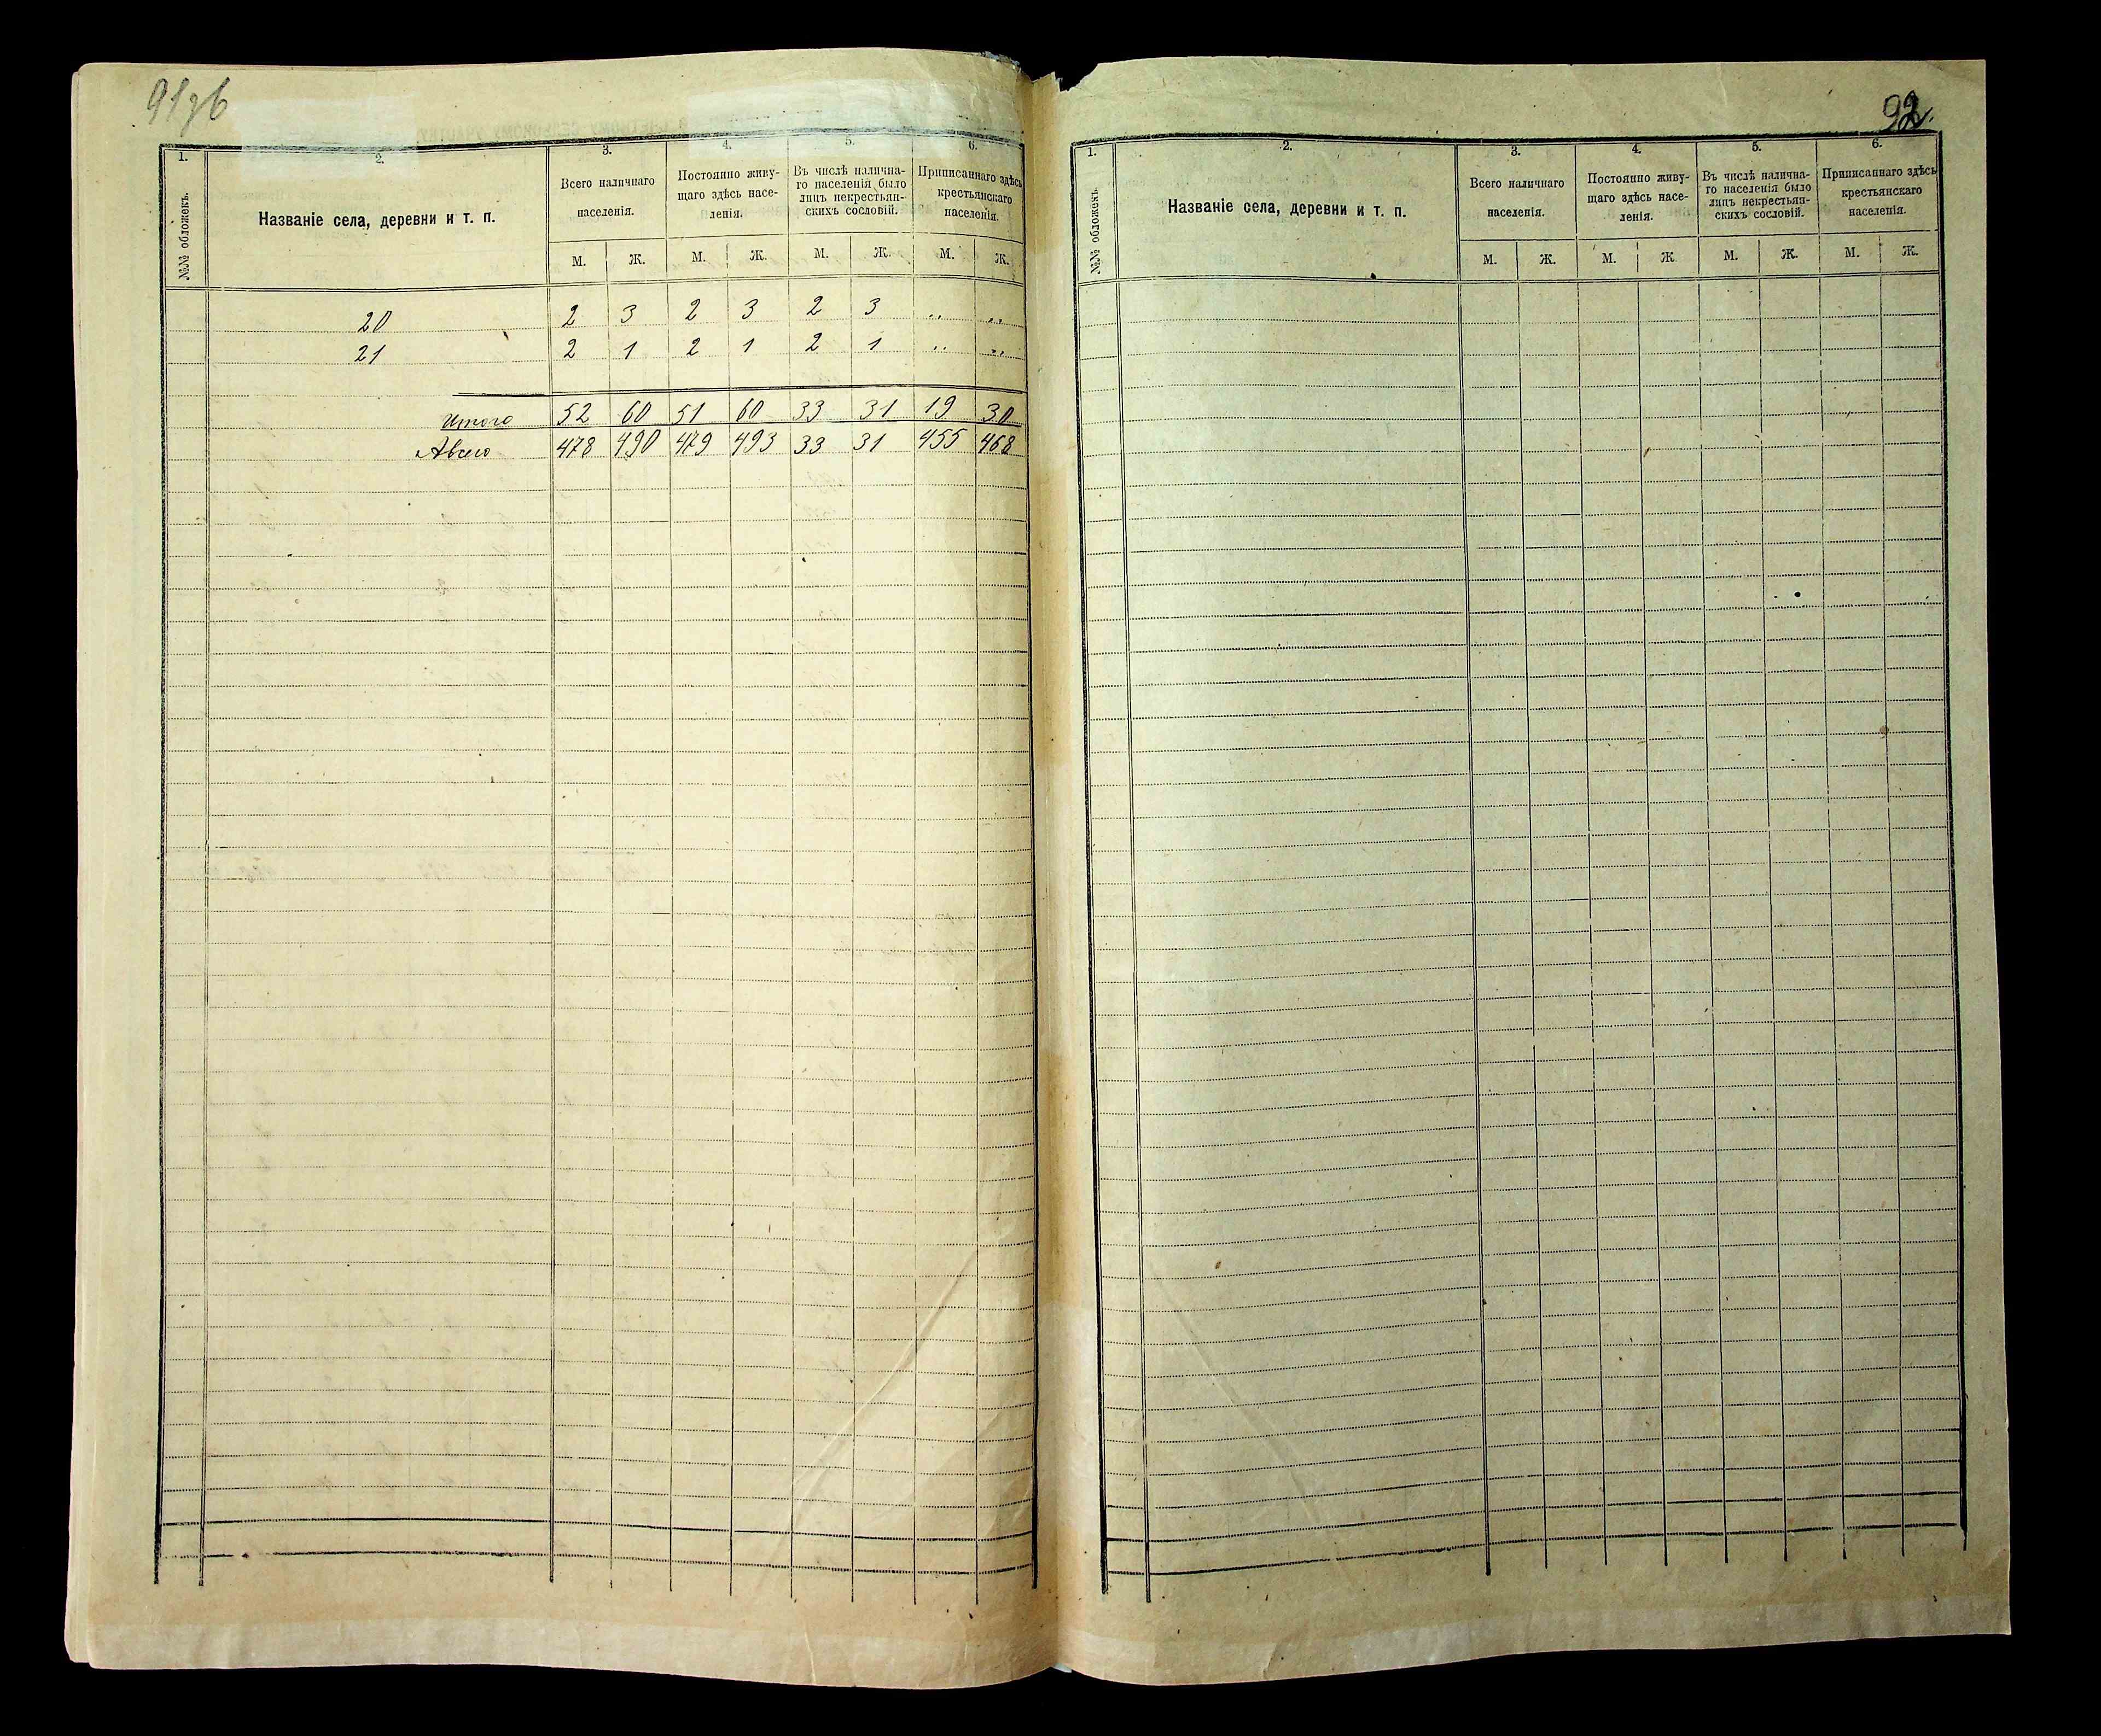 91зв
1. 2. 3. 4. 5. 6.
№№ обложекъ. Названіе села, деревни и т. п. Всего наличнаго населенія. Постоянно живущаго здѣсь населенія. Въ числѣ наличнаго населенія было лицъ некрестьянскихъ сословій. Приписаннаго здѣсь крестьянскаго населенія.
М. Ж. М. Ж. М. Ж. М. Ж.
20 2 3 2 3 2 3 .. ..
21 2 1 2 1 2 1 .. ..
Итого 52 60 51 60 33 31 19 30
Авсего 478 490 479 493 33 31 455 468
92.
1. 2. 3. 4. 5. 6.
№№ обложекъ. Названіе села, деревни и т. п. Всего наличнаго населенія. Постоянно живущаго здѣсь населенія. Въ числѣ наличнаго населенія было лицъ некрестьянскихъ сословій. Приписаннаго здѣсь крестьянскаго населенія.
М. Ж. М. Ж М. Ж. М. Ж.